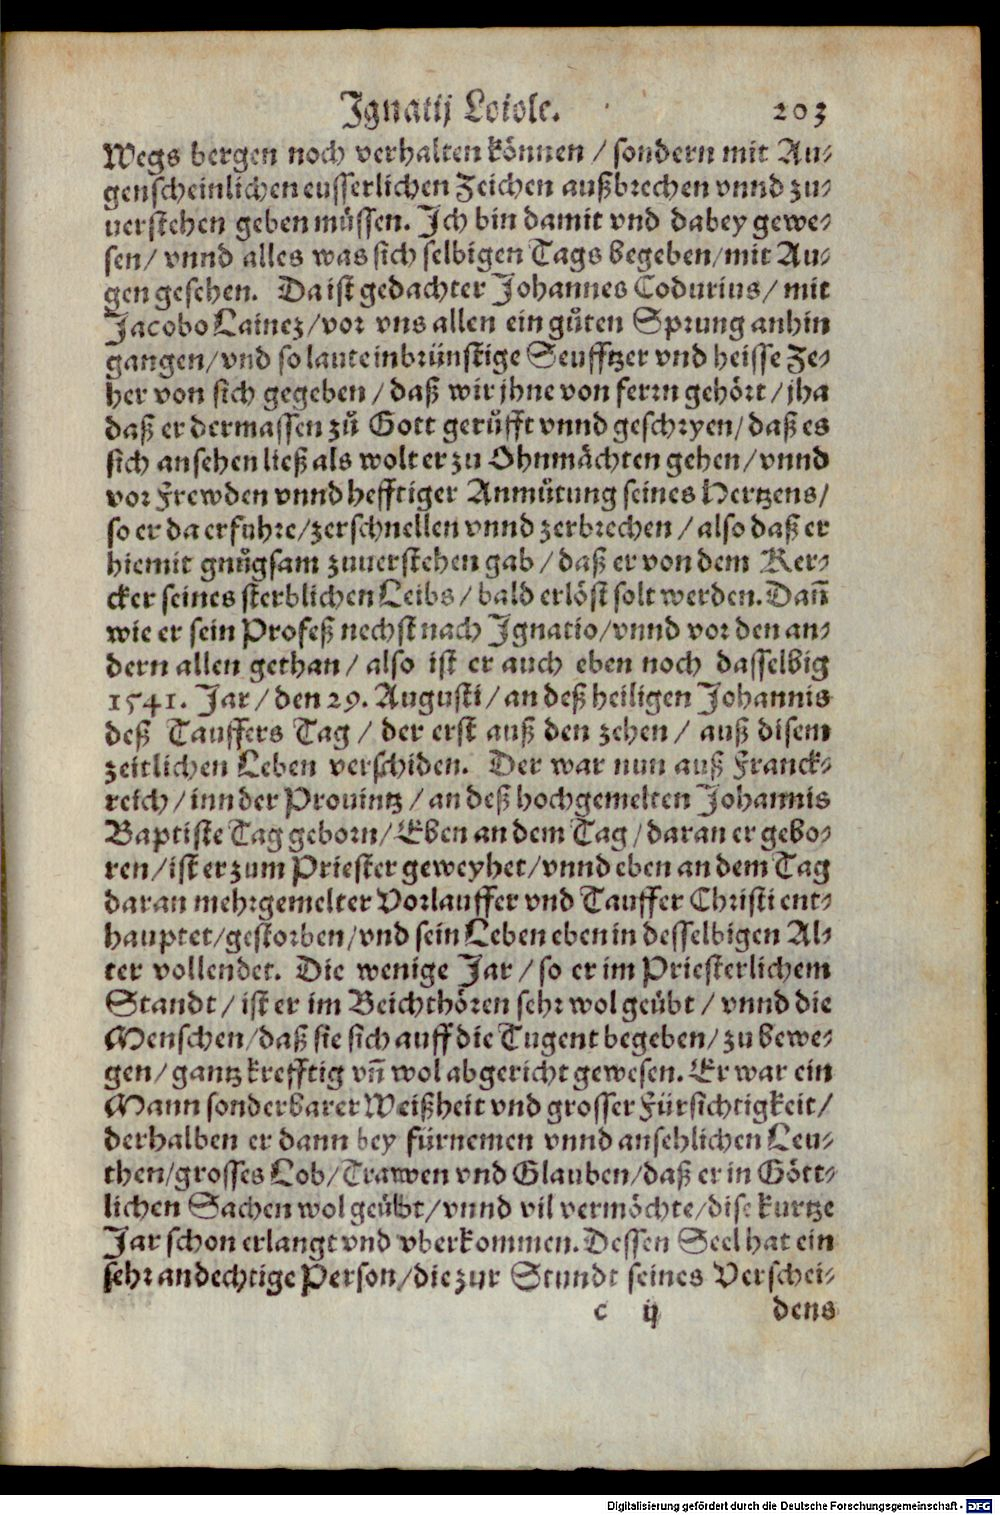 Ignatij Loiole. 203
Wegs bergen noch verhalten können / sondern mit Au-
genscheinlichen eusserlichen Zeichen außbrechen vnnd zu-
uerstehen geben müssen. Ich bin damit vnd dabey gewe-
sen / vnnd alles was sich selbigen Tags begeben / mit Au-
gen gesehen. Da ist gedachter Johannes Codurius / mit
Jacobo Lainez / vor vns allen ein gůten Sprung anhin
gangen / vnd so laut einbrünstige Seufftzer vnd heisse Ze-
her von sich gegeben / daß wir jhne von ferrn gehört / jha
daß er dermassen zů Gott gerüfft vnnd geschryen / daß es
sich ansehen ließ als wolt er zu Ohnmächten gehen / vnnd
vor Frewden vnnd hefftiger Anmůtung seines Hertzens /
so er da erfuhre / zerschnellen vnnd zerbrechen / also daß er
hiemit gnůgsam zuuerstehen gab / daß er von dem Ker-
cker seines sterblichen Leibs / bald erlöst solt werden. Dañ
wie er sein Profeß nechst nach Ignatio / vnnd vor den an-
dern allen gethan / also ist er auch eben noch dasselbig
1541. Jar / den 29. Augusti / an deß heiligen Johannis
deß Tauffers Tag / der erst auß den zehen / auß disem
zeitlichen Leben verschiden. Der war nun auß Franck-
reich / inn der Prouintz / an deß hochgemelten Johannis
Baptiste Tag geborn / Eben an dem Tag / daran er gebo-
ren / ist er zum Priester geweyhet / vnnd eben an dem Tag
daran mehrgemelter Vorlauffer vnd Tauffer Christi ent-
hauptet / gestorben / vnd sein Leben eben in desselbigen Al-
ter vollendet. Die wenige Jar / so er im Priesterlichem
Standt / ist er im Beichthören sehr wol geübt / vnnd die
Menschen / daß sie sich auff die Tugent begeben / zu bewe-
gen / gantz krefftig vñ wol abgericht gewesen. Er war ein
Mann sonderbarer Weißheit vnd grosser Fürsichtigkeit /
derhalben er dann bey fürnemen vnnd ansehlichen Leu-
then / grosses Lob / Trawen vnd Glauben / daß er in Gött-
lichen Sachen wol geübt / vnnd vil vermöchte / dise kurtze
Jar schon erlangt vnd vberkommen. Dessen Seel hat ein
sehr andechtige Person / die zur Stundt seines Verschei-
c ij dens
Digitalisierung gefördert durch die Deutsche Forschungsgemeinschaft - DFG